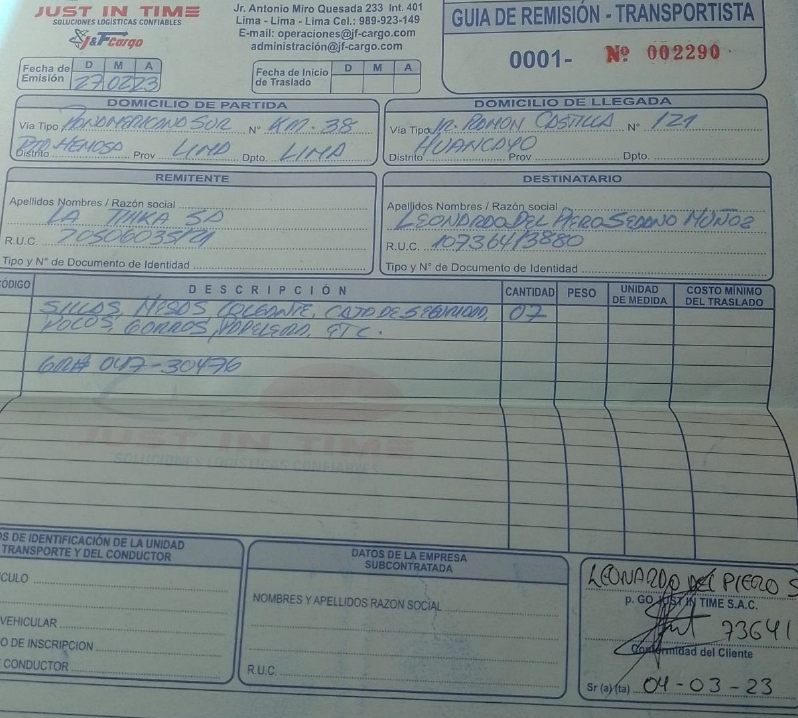 JUST IN TIME
SOLUCIONES LOGÍSTICAS CONFIABLES
J&F Cargo
Jr. Antonio Miro Quesada 233 Int. 401
Lima - Lima - Lima Cel.: 989-923-149
E-mail: operaciones@jf-cargo.com
administración@jf-cargo.com
GUIA DE REMISIÓN - TRANSPORTISTA
0001- Nº 002290
Fecha de Emisión D M A
27 02 23
Fecha de Inicio de Traslado D M A
DOMICILIO DE PARTIDA
Via Tipo PANAMERICANA SUR Nº KM. 38
Distrito PTA HERMOSA Prov LIMA Dpto. LIMA
DOMICILIO DE LLEGADA
Vía Tipo JR. RAMON CASTILLA Nº 121
Distrito HUANCAYO Prov Dpto.
REMITENTE
Apellidos Nombres / Razón social
LA TINKA SA
R.U.C. 20506035121
Tipo y N° de Documento de Identidad
DESTINATARIO
Apellidos Nombres / Razón social
LEONARDO DEL PIERO SEDANO MUÑOZ
R.U.C. 10736413880
Tipo y N° de Documento de Identidad
CÓDIGO DESCRIPCIÓN CANTIDAD PESO UNIDAD DE MEDIDA COSTO MÍNIMO DEL TRASLADO
SILLAS, MESAS, COLGANTE, CAJA DE SEGURIDAD, 07
GORROS, PAPELERA, ETC.
GR# 047-30476
JUST IN TIME
SOLUCIONES LOGÍSTICAS CONFIABLES
OS DE IDENTIFICACIÓN DE LA UNIDAD
TRANSPORTE Y DEL CONDUCTOR
CULO
VEHICULAR
O DE INSCRIPCION
CONDUCTOR
DATOS DE LA EMPRESA
SUBCONTRATADA
NOMBRES Y APELLIDOS RAZON SOCIAL
R.U.C.
LEONARDO del PIERO S
p. GO JUST IN TIME S.A.C.
73641
Conformidad del Cliente
Sr (a) (ta) 04-03-23